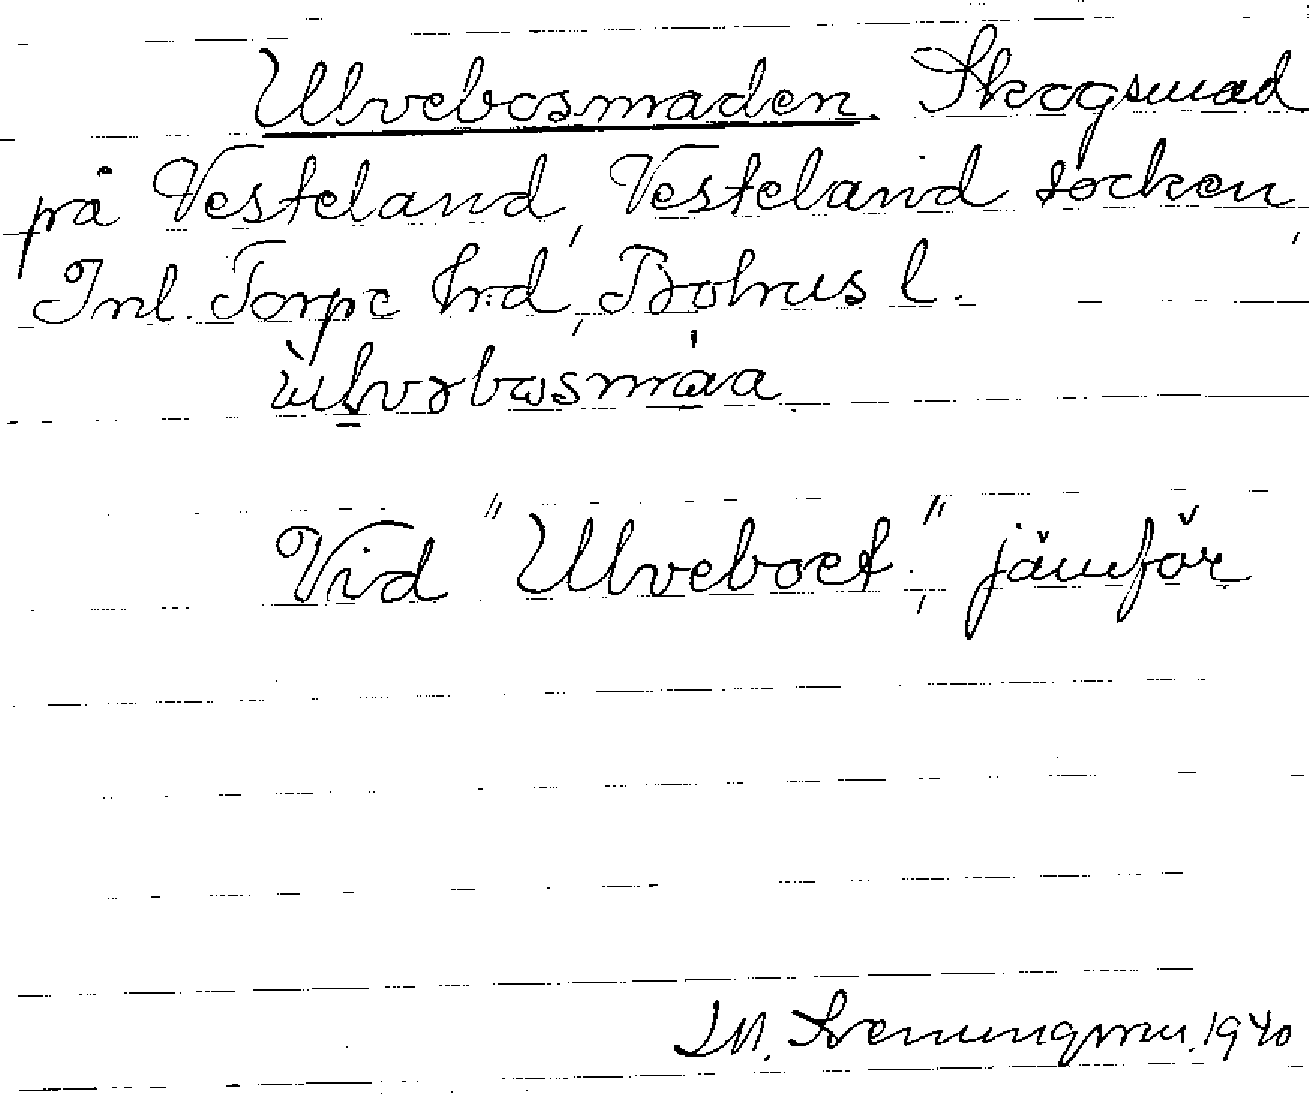 Ulvebosmaden. Skogsmad
på Vesteland, Vesteland socken,
Inl. Torpe hrd, Bohus l.
ùlvəbωsmáa
Vid "Ulveboet", jämför
1940